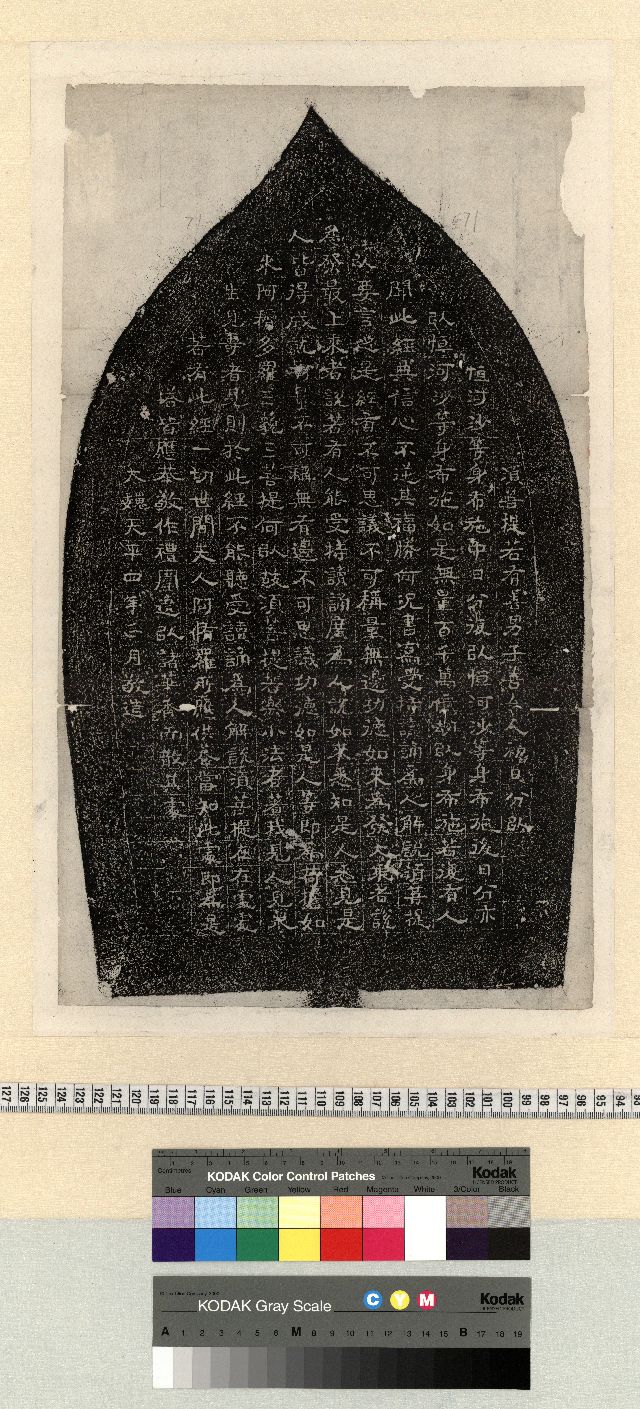 須菩提若有善男子善女人初日分以
恒河沙等身布施中日分復以恒河沙等身布施後日分亦
以恒河沙等身布施如是無量百千萬億劫以身布施若復有人
聞此經典信心不逆其福勝何況書寫受持讀誦為人解說須菩提
以要言之是經有不可思議不可稱量無邊功德如来為發大乘者說
為發最上乘者說若有人能受持讀誦廣為人說如来悉知是人悉見是
人皆得成就可量不可稱無有邊不可思議功德如是人等即為荷擔如
來阿耨多羅三藐三菩提何以故須菩提若樂小法者著我見人見衆
生見壽者見則於此經不能聽受讀誦為人解說須菩提在在處處
若有此經一切世間天人阿脩羅所應供養當知此處即為是
塔皆應恭敬作禮圍遶以諸華香而散其處
大魏天平四年三月敬造
127 126 125 124 123 122 121 120 119 118 117 116 115 114 113 112 111 110 109 108 107 106 105 104 103 102 101 100 99 98 97 96 95 94
Centimetres
KODAK Color Control Patches
Kodak
LICENSED PRODUCT
Blue Cyan Green Yellow Red Magenta White 3/Color Black
KODAK Gray Scale
C Y M
Kodak
LICENSED PRODUCT
A 1 2 3 4 5 6 M 8 9 10 11 12 13 14 15 B 17 18 19